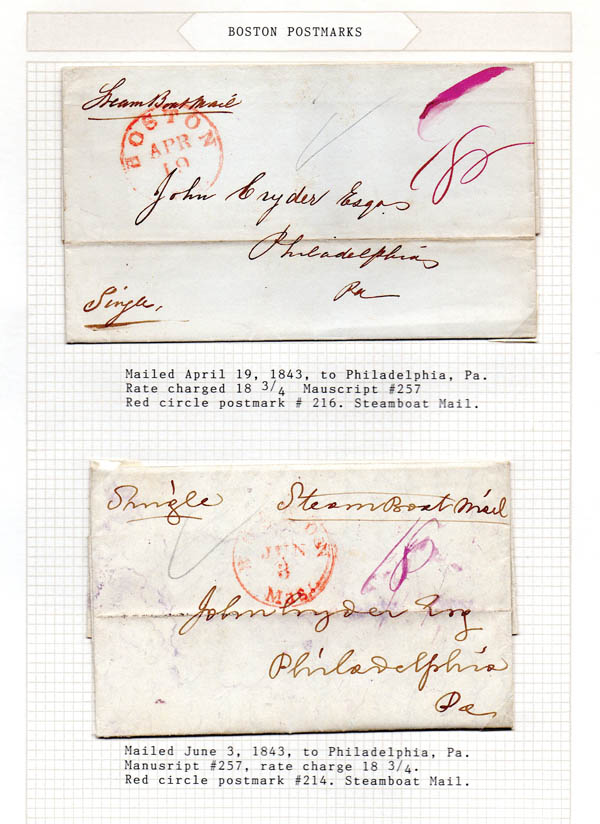 BOSTON POSTMARKS
Steam Boat Mail
BOSTON
APR
19
18
John Cryder Esqr
Philadelphia
Pa
Single,
Mailed April 19, 1843, to Philadelphia, Pa.
Rate charged 18 3/4 Mauscript #257
Red circle postmark # 216. Steamboat Mail.
Single
Steam Boat Mail
JUN
3
Mas.
18
John Cryder Esq
Philadelphia
Pa
Mailed June 3, 1843, to Philadelphia, Pa.
Manusript #257, rate charge 18 3/4.
Red circle postmark #214. Steamboat Mail.